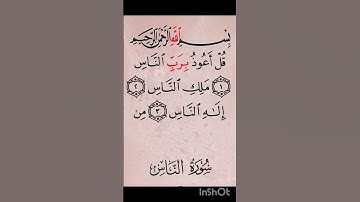 بِسْمِ ٱللَّهِ ٱلرَّحْمَٰنِ ٱلرَّحِيمِ
قُلْ أَعُوذُ بِرَبِّ ٱلنَّاسِ
١ مَلِكِ ٱلنَّاسِ ٢
إِلَٰهِ ٱلنَّاسِ ٣ مِن
سُورَةُ النَّاسِ
InShOt